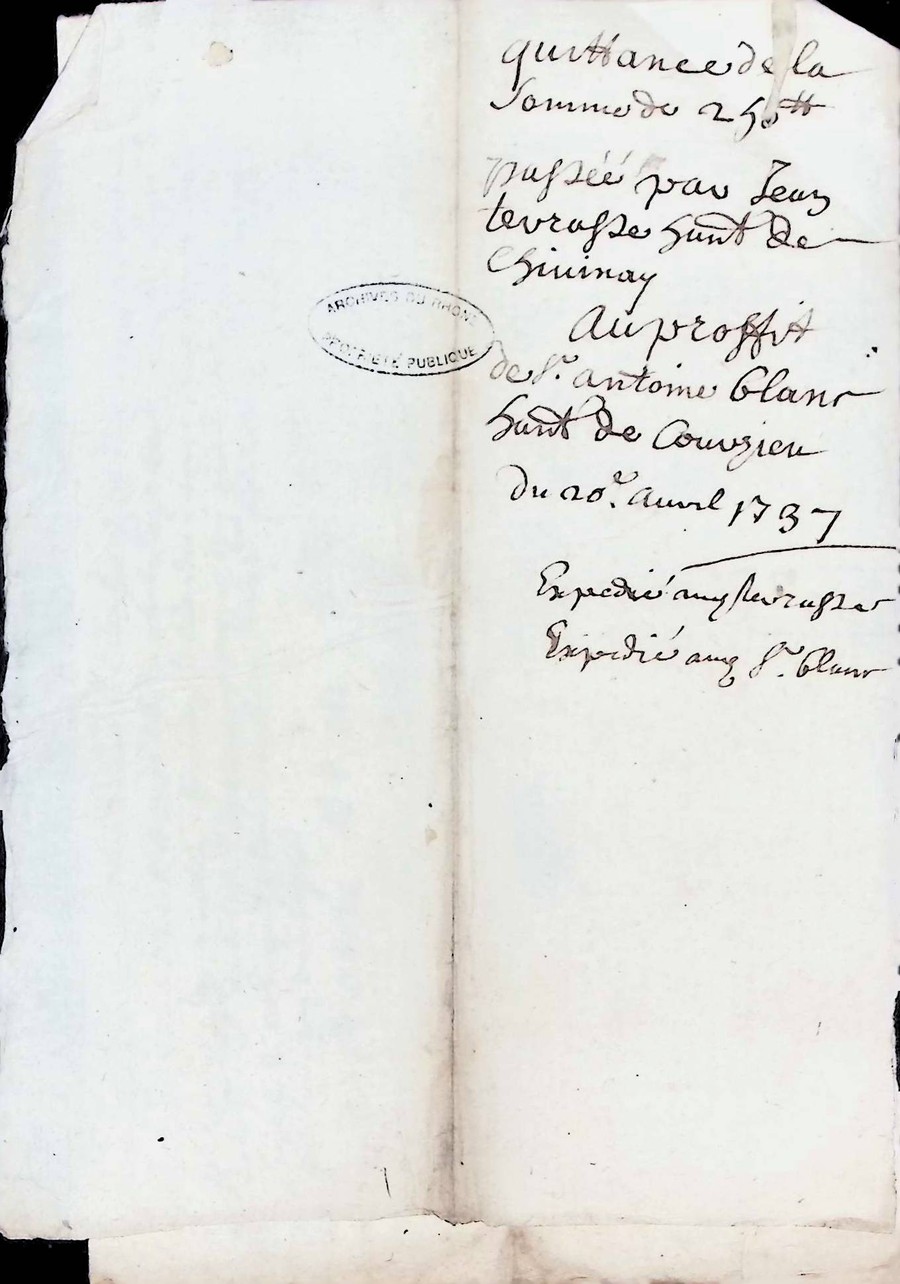 quittance de la
Somme de 250tt
passéé par Jean
terrasse habnt de
Chivinay
Au proffit
de Sr. antoine blanc
habnt de Courzieu
du 20e. avril 1737
Expedié aud terrasse
Expedié aud Sr. blanc
ARCHIVES DU RHONE
PROPRIETÉ PUBLIQUE